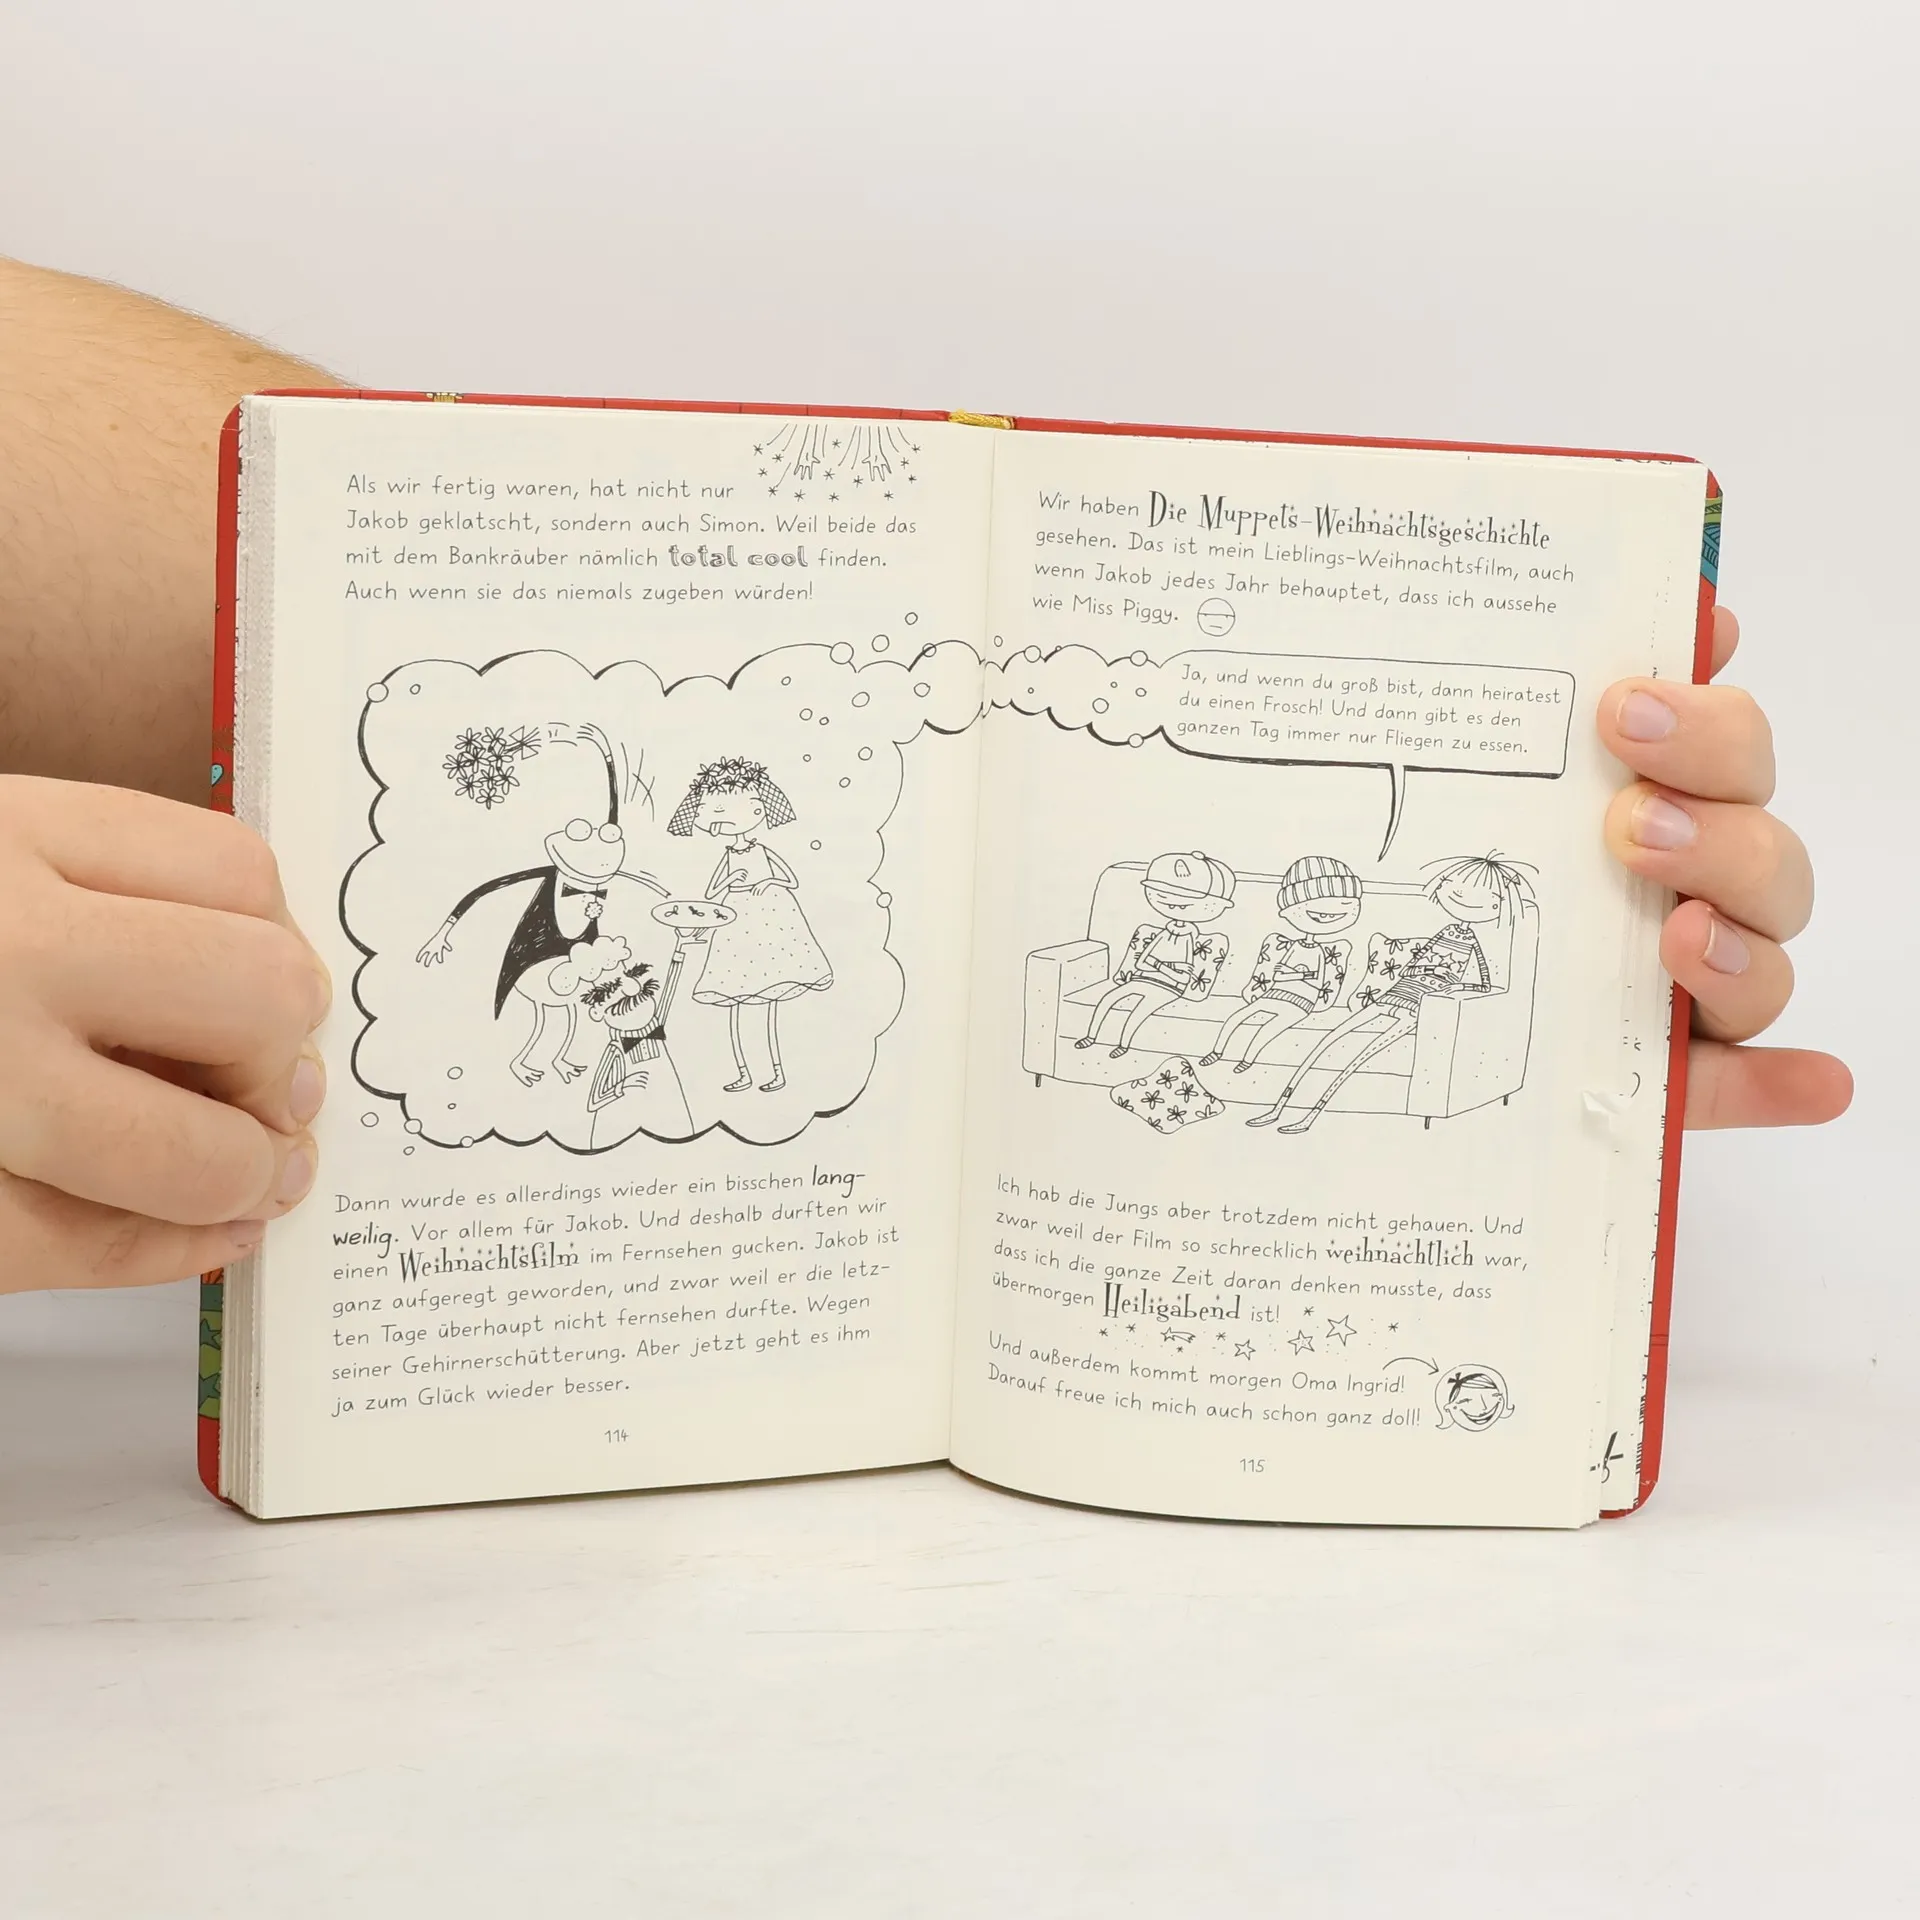 Als wir fertig waren, hat nicht nur
Jakob geklatscht, sondern auch Simon. Weil beide das
mit dem Bankräuber nämlich total cool finden.
Auch wenn sie das niemals zugeben würden!
Dann wurde es allerdings wieder ein bisschen lang-
weilig. Vor allem für Jakob. Und deshalb durften wir
einen Weihnachtsfilm im Fernsehen gucken. Jakob ist
ganz aufgeregt geworden, und zwar weil er die letz-
ten Tage überhaupt nicht fernsehen durfte. Wegen
seiner Gehirnerschütterung. Aber jetzt geht es ihm
ja zum Glück wieder besser.
114
Wir haben Die Muppets-Weihnachtsgeschichte
gesehen. Das ist mein Lieblings-Weihnachtsfilm, auch
wenn Jakob jedes Jahr behauptet, dass ich aussehe
wie Miss Piggy.
Ja, und wenn du groß bist, dann heiratest
du einen Frosch! Und dann gibt es den
ganzen Tag immer nur Fliegen zu essen.
Ich hab die Jungs aber trotzdem nicht gehauen. Und
zwar weil der Film so schrecklich weihnachtlich war,
dass ich die ganze Zeit daran denken musste, dass
übermorgen Heiligabend ist!
Und außerdem kommt morgen Oma Ingrid!
Darauf freue ich mich auch schon ganz doll!
115